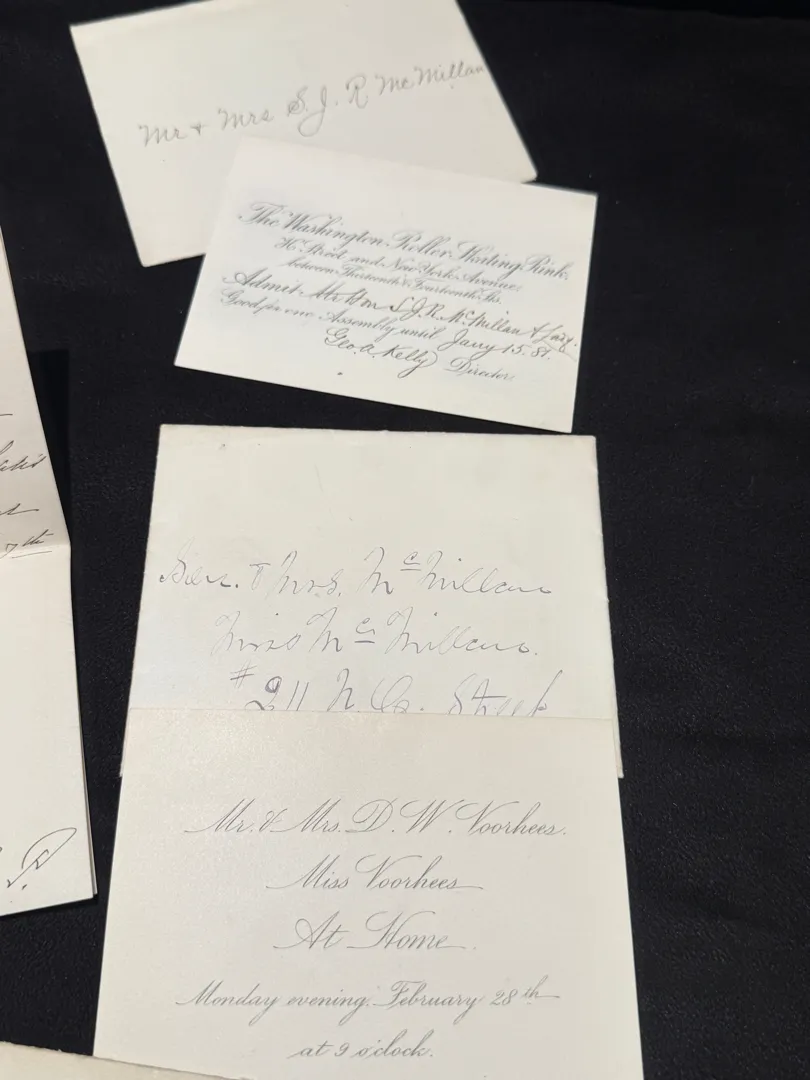 Mr + Mrs S. J. R McMillan
The Washington Roller Skating Rink.
K Street and New York Avenue.
between Thirteenth & Fourteenth Sts.
Admit Mr Hon S. J. R. McMillan &
Good for one Assembly until Jany 15. 81.
Geo. A. Kelly Director.
Sen. & Mrs. McMillan
Miss McMillan.
# 211 N. Street
Mr. & Mrs. D. W. Voorhees.
Miss Voorhees
At Home
Monday evening, February 28th
at 9 o'clock.
7th